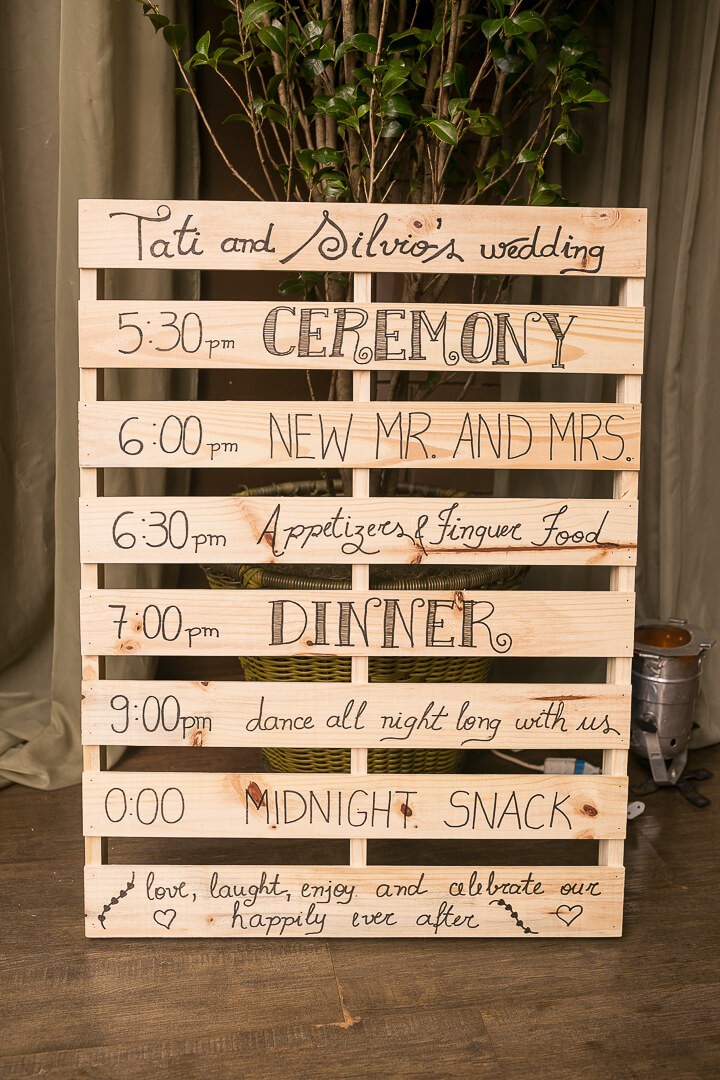 Tati and Silvio's wedding
5:30pm CEREMONY
6:00pm NEW MR. AND MRS.
6:30pm Appetizers & Finguer Food
7:00pm DINNER
9:00pm dance all night long with us
0:00 MIDNIGHT SNACK
love, laught, enjoy and celebrate our
happily ever after